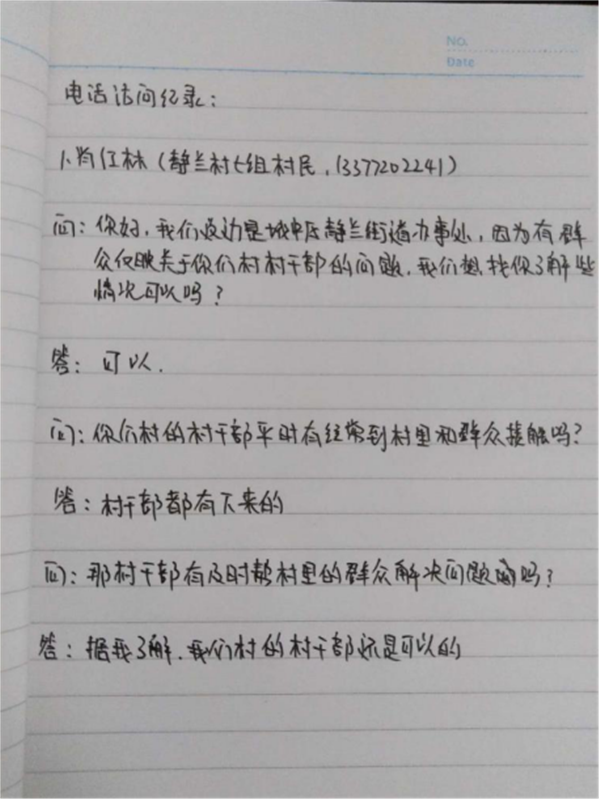 No.
Date
电话访问纪录：
1、肖红林（静兰村七组村民，13377202241）
问：你好，我们这边是城中区静兰街道办事处，因为有群
众反映关于你们村村干部的问题，我们想找你了解些
情况可以吗？
答：可以.
问：你们村的村干部平时有经常到村里和群众接触吗？
答：村干部都有下来的
问：那村干部有及时帮村里的群众解决问题吗？
答：据我了解，我们村的村干部还是可以的